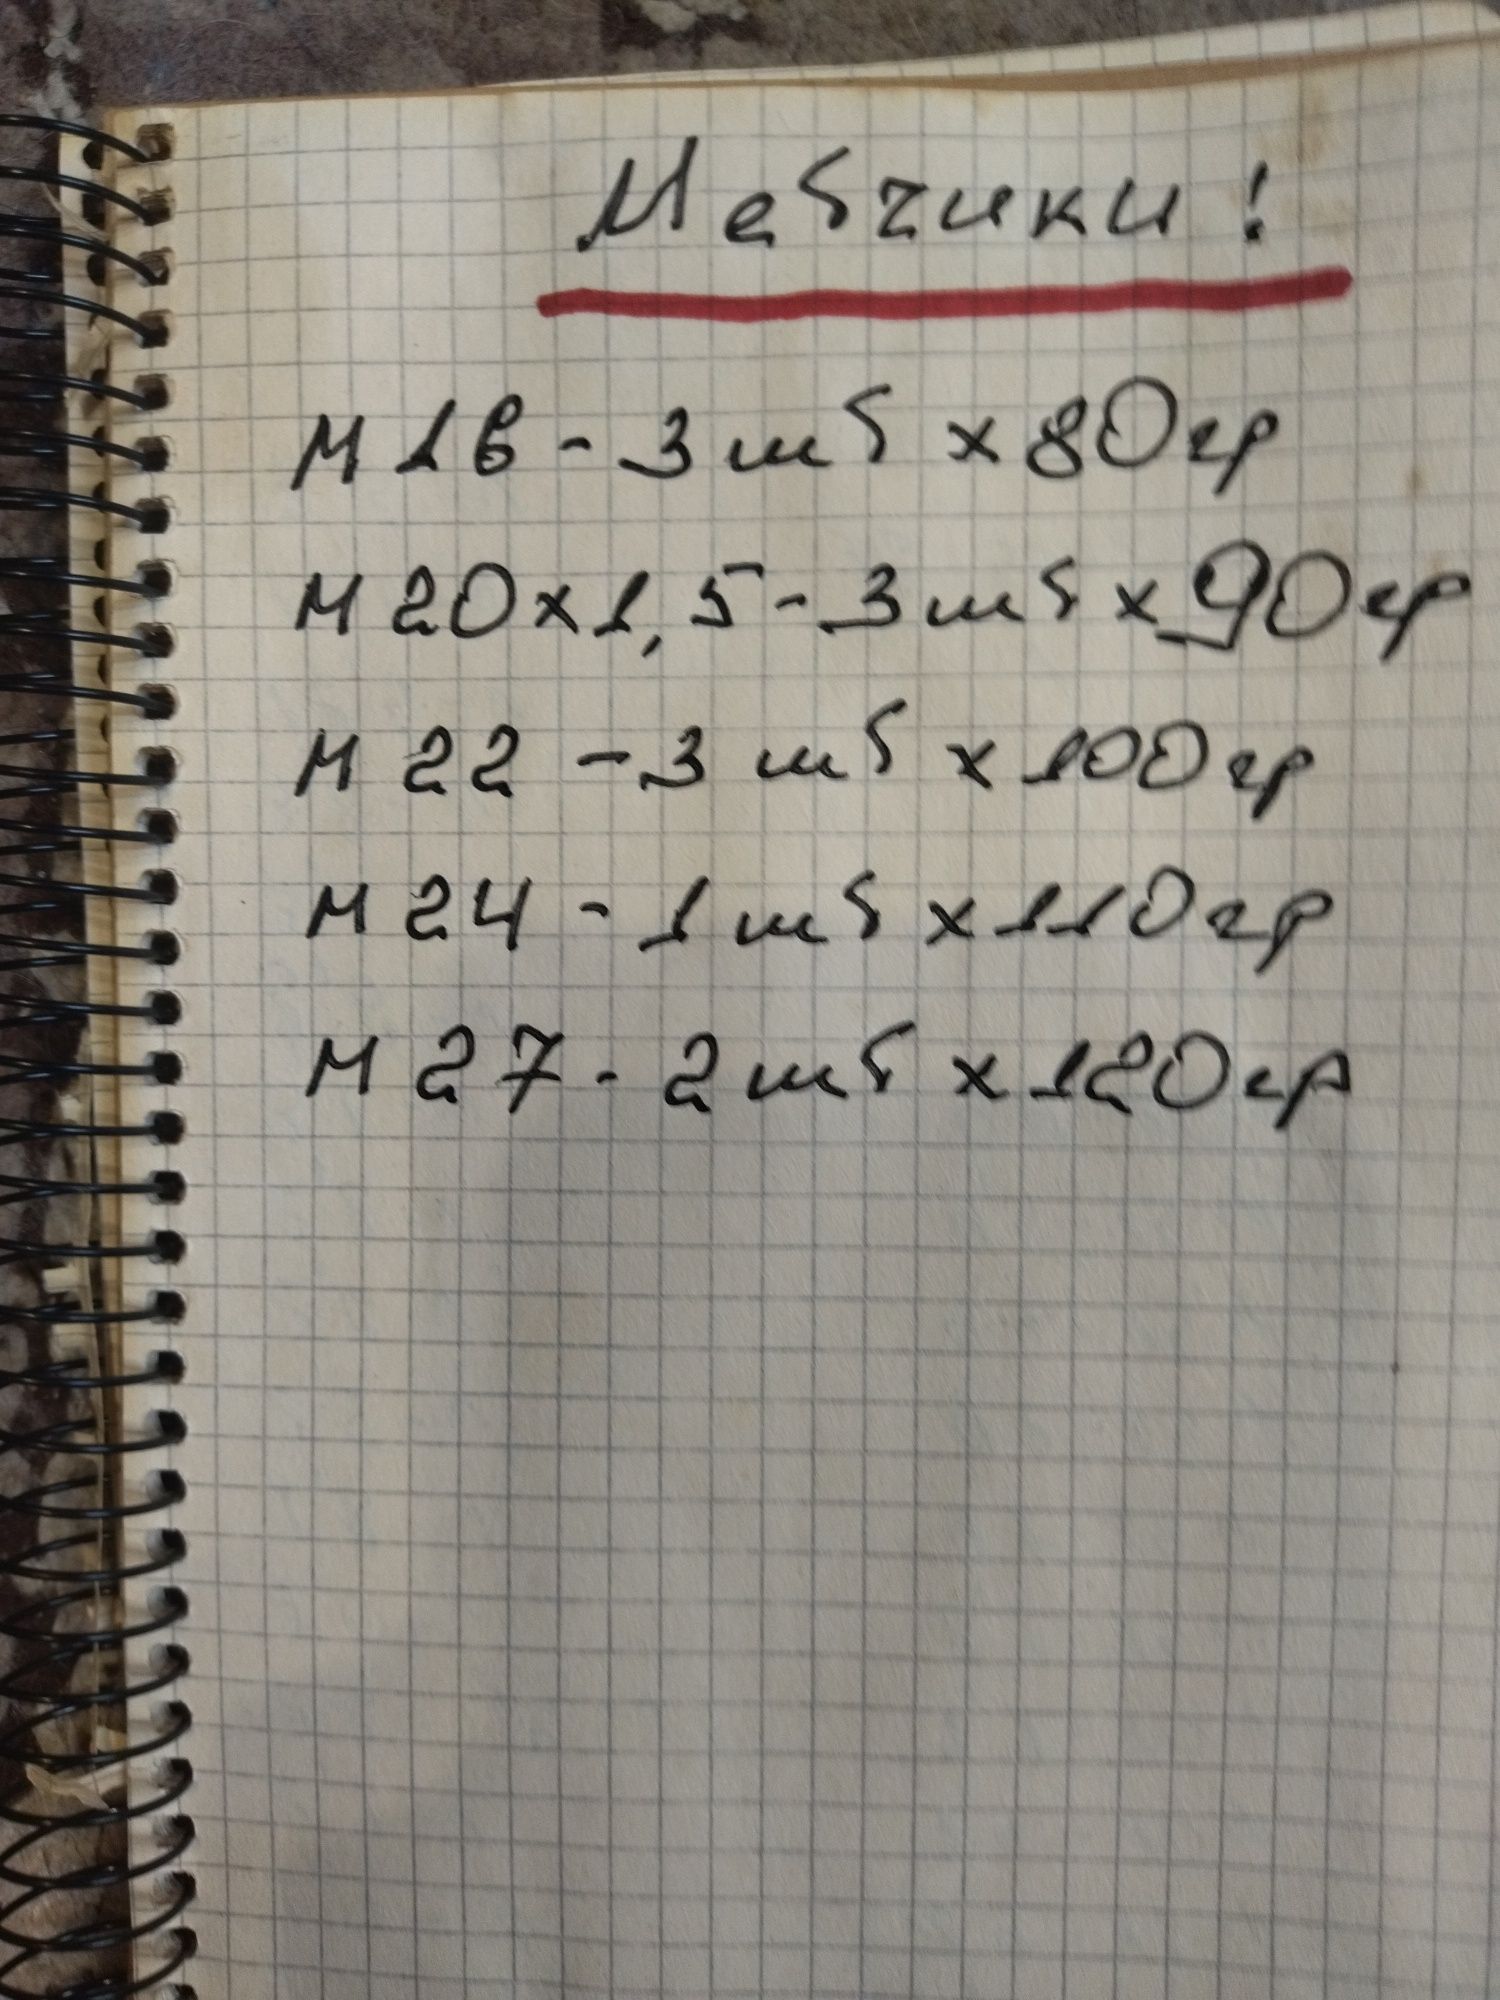 Метчики!
М 16 - 3 шт х 80 гр
М 20х1,5 - 3 шт х 90 гр
М 22 - 3 шт х 100 гр
М 24 - 1 шт х 110 гр
М 27 - 2 шт х 120 гр